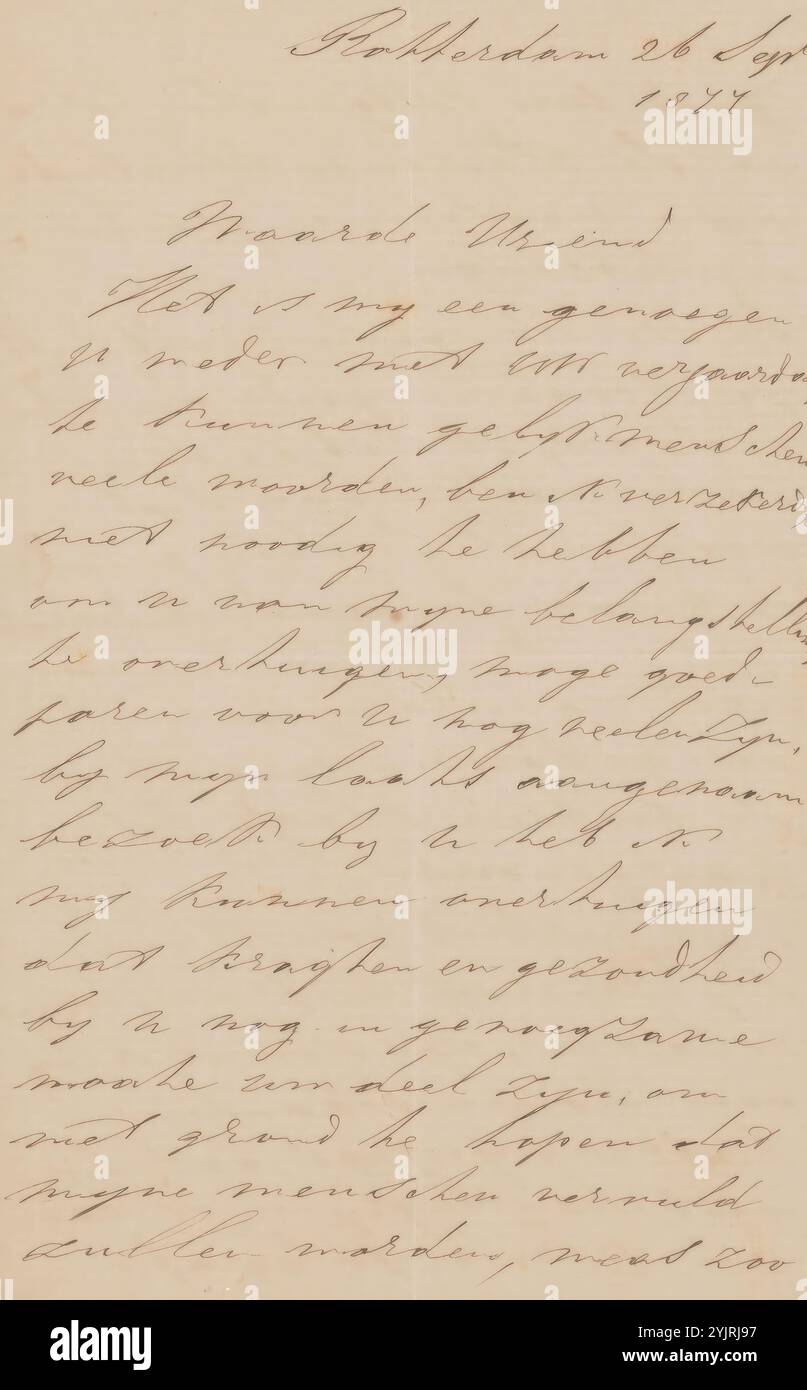 Rotterdam 26 Sept
1877
Waarde Vriend
Het is my een genoegen
U weder met uw verjaarda
te kunnen geluk menschen
veele woorden, ben ik verzekerd
niet noodig te hebben
om u van myne belangstellin
te overtuigen, moge goede
jaren voor u nog veelen zyn,
by myn laats aangenaam
bezoek by u heb ik
my kunnen overtuigen
dat kraghten en gezondheid
by u nog in genoegzame
maate um deel zyn, om
met grond te hopen dat
myne menschen vervuld
zullen worden, wees zoo
alamy
Image ID: 2YJRJ97
www.alamy.com